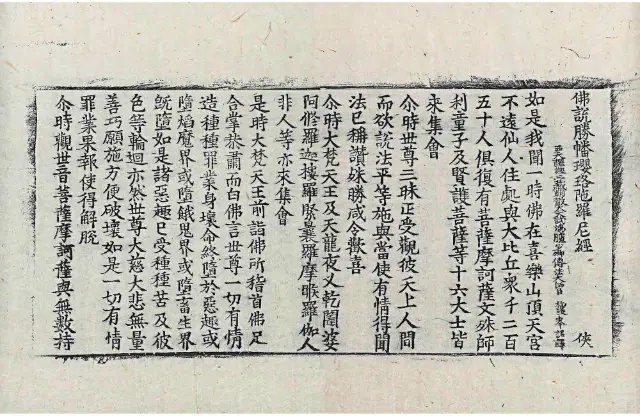 佛説勝幡瓔珞陁羅尼經 俠
如是我聞一時佛在喜樂山頂天宮
不遠仙人住處與大比丘衆千二百
五十人俱復有菩薩摩訶薩文殊師
利童子及賢護菩薩等十六大士皆
來集會
尒時世尊三昧正受觀彼天上人間
而欲說法平等施與當使有情得聞
法已稱讚殊勝咸令歡喜
尒時大梵天王及天龍夜叉乾闥婆
阿修羅迦樓羅緊曩羅摩睺羅伽人
非人等亦來集會
是時大梵天王前詣佛所稽首佛足
合掌恭肅而白佛言世尊一切有情
造種種罪業身壞命終墮於惡趣或
墮焰魔界或墮餓鬼界或墮畜生界
旣墮如是諸惡趣已受種種苦及彼
色等輪迴亦然世尊大慈大悲無量
善巧願施方便破壞如是一切有情
罪業果報使得解脫
尒時觀世音菩薩摩訶薩與無數持